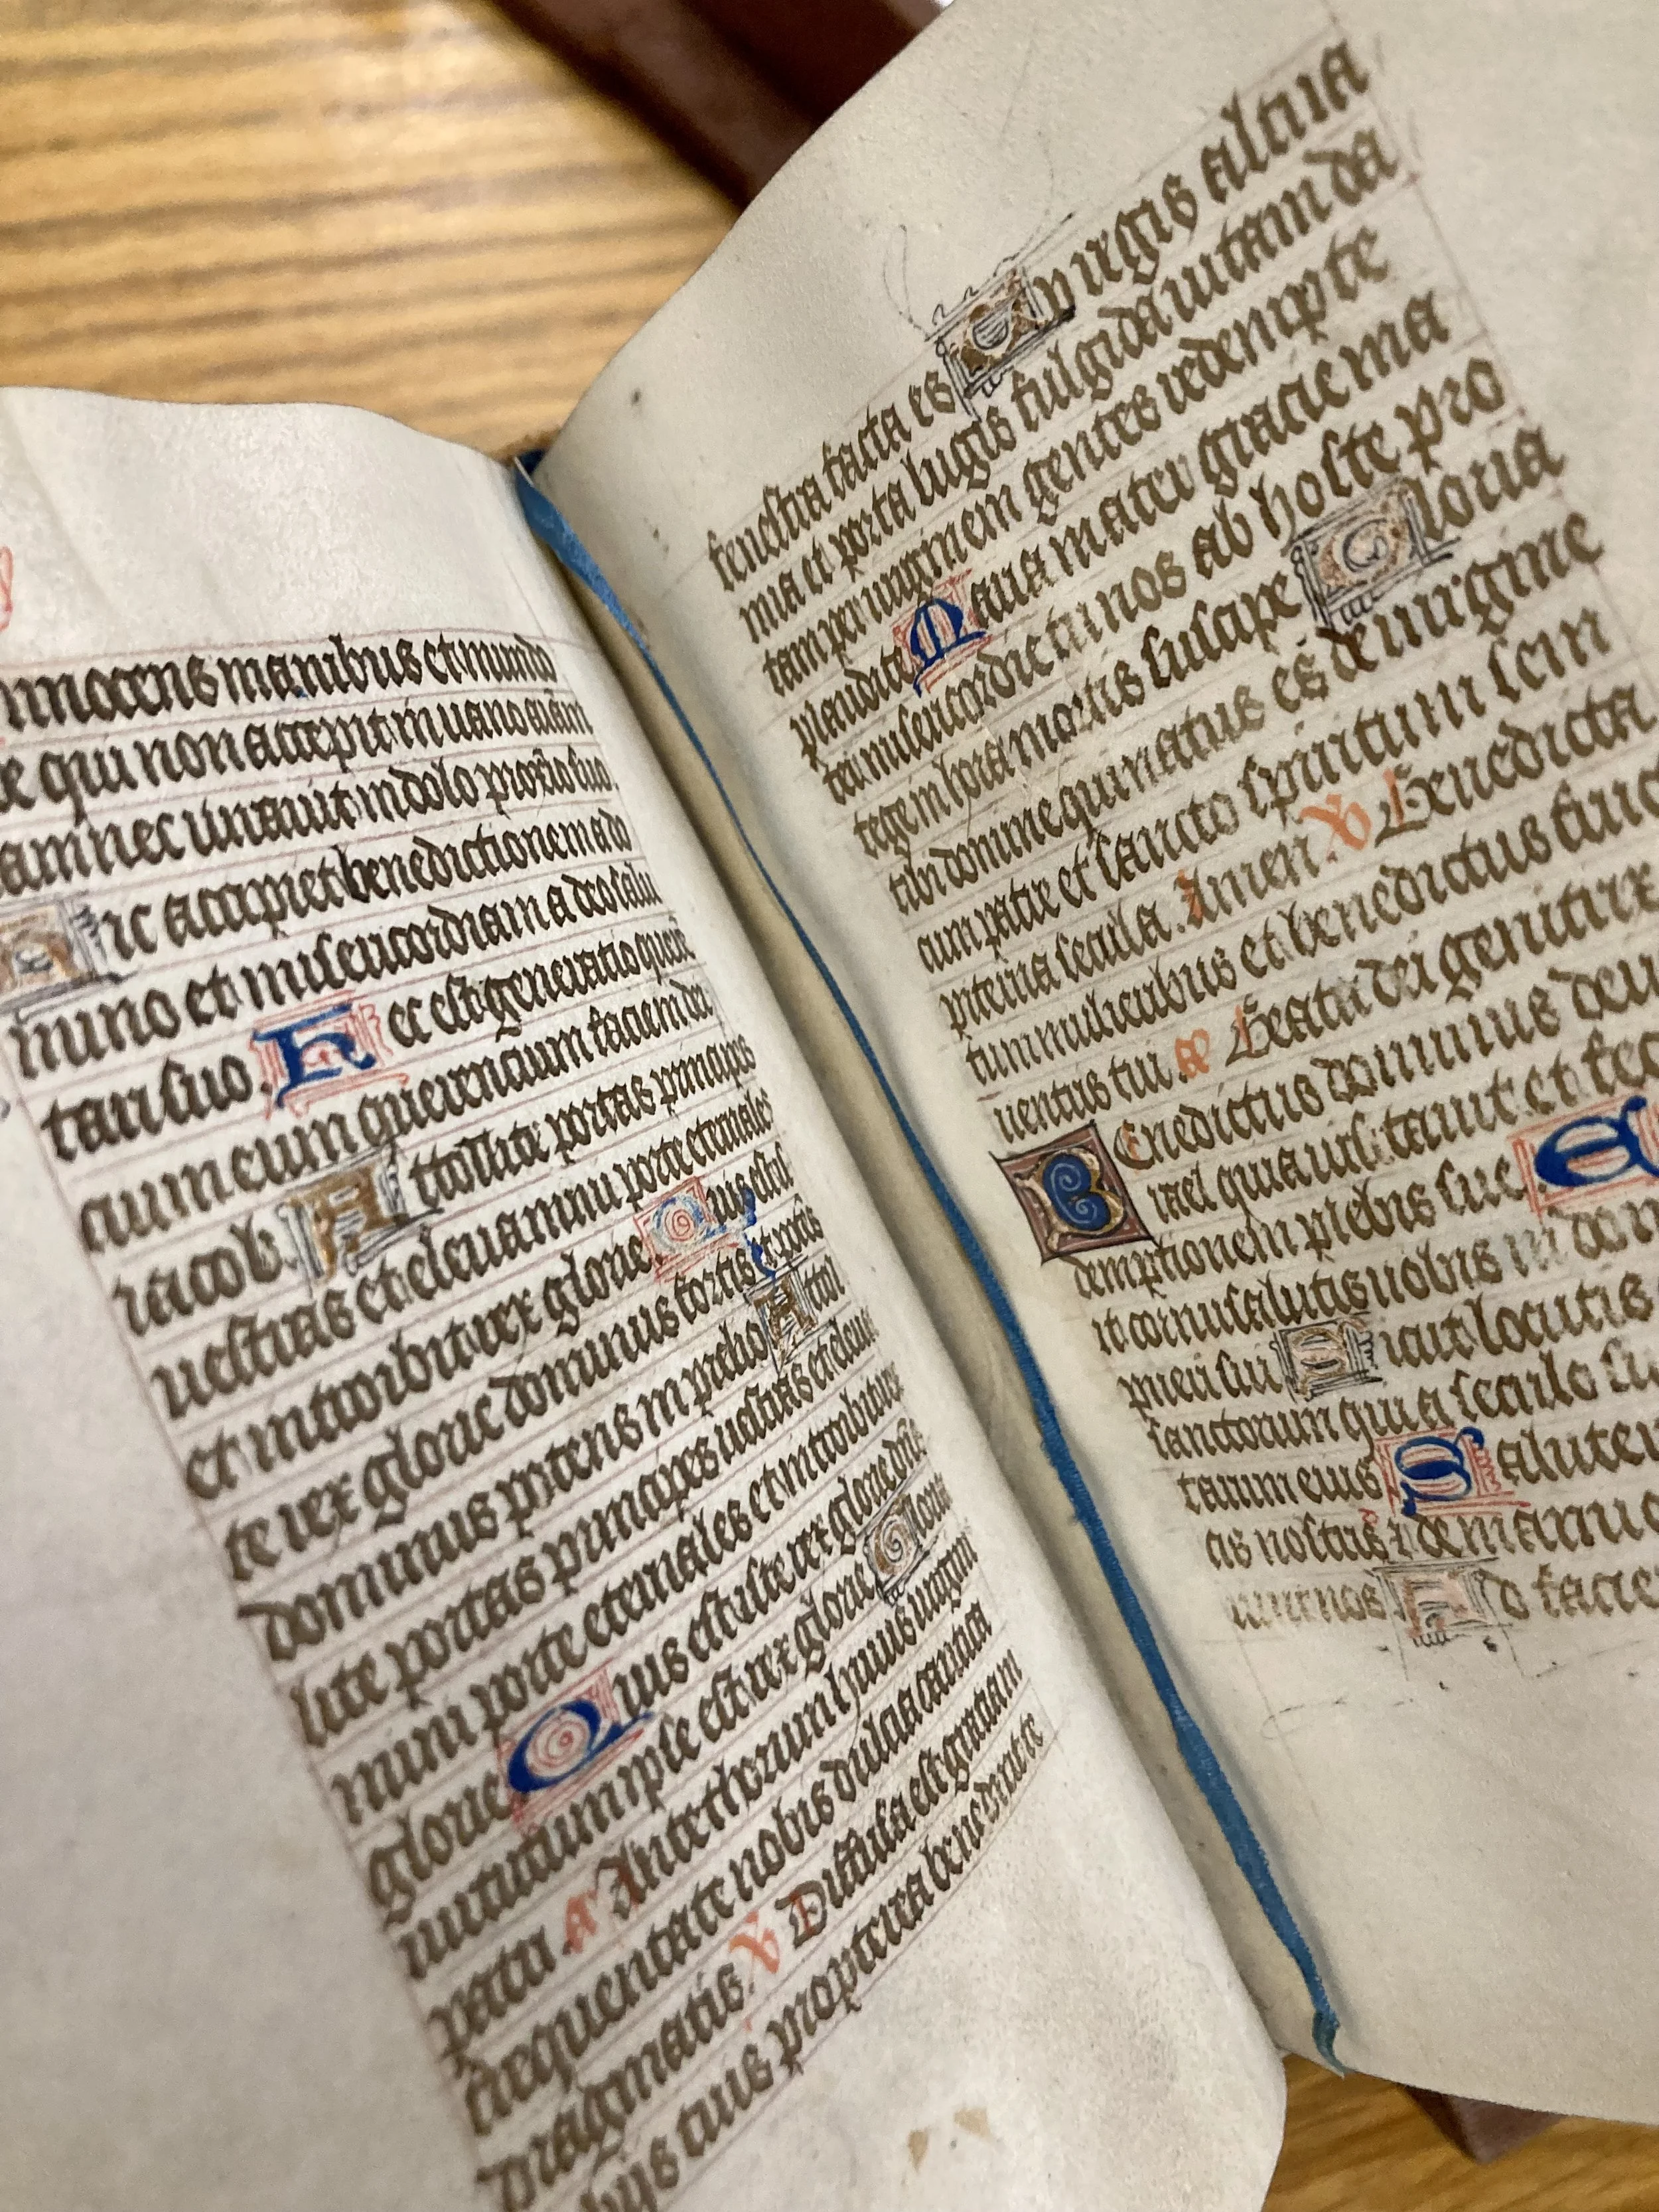 innocens manibus et mundo
qui non accepit in uano aīam
am nec iurauit in dolo proxīo suo.
Hic accipiet benedictionem a do
mino et misericordiam a deo salu
tari suo. Hec est generatio querē
cium eum querencium faciem dei
iacob. Attollite portas principes
uestras et eleuamini porte eternales
et introibit rex glorie. Quis est is
te rex glorie dominus fortis et potēs
dominus potens in prelio Attol
lite portas principes uestras et eleua
mini porte eternales et introibit rex
glorie Quis est iste rex glorie dn̄s
uirtutum ipse est rex glorie Gloria
patri a Ante thorum huius uirginis
frequentate nobis dulcia cantica
dragmatis. V Diffusa est gratia in
bijs tuis propterea benedixit te
fenestra facta es Tu regis alti ia
nua et porta lucis fulgida uitam da
tam per uirginem gentes redempte
plaudite Maria mater gracie ma
ter misericordie tu nos ab hoste pro
tege in hora mortis suscipe Gloria
tibi domine qui natus es de uirgine
cum patre et sancto spiritum sem
piterna secula. Amen. V Benedicta
tu in mulieribus et benedictus fruc
uentris tui. a Beata dei genitrix
Benedictus dominus deu
israel quia uisitauit et fec
demptionem plebis sue. E
it cornu salutis nobis in dom
pueri sui Sicut locutus
sanctorum qui a seculo su
tarum eius Salutem
is nostris z de manu
unt nos Ad facie